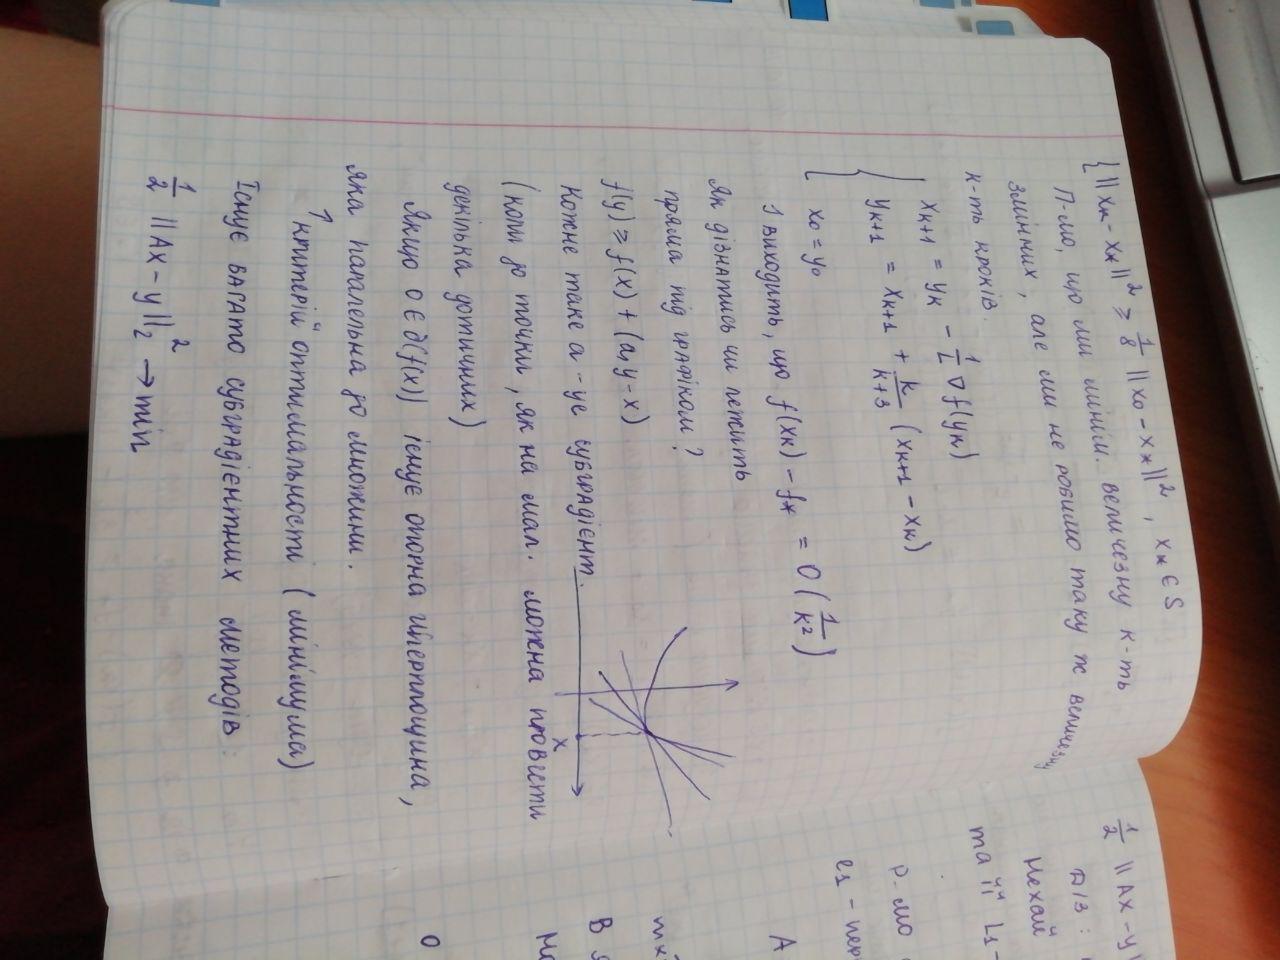 { ||xₖ - x*||² ≥ 1/8 ||x₀ - x*||² , x* ∈ S
П-мо, що ми мінім. величезну к-ть
змінних, але ми не робимо таку ж величезну
к-ть кроків.
xₖ₊₁ = yₖ - 1/L ∇f(yₖ)
yₖ₊₁ = xₖ₊₁ + k/(k+3) (xₖ₊₁ - xₖ)
x₀ = y₀
І виходить, що f(xₖ) - f* = O(1/k²)
Як дізнатись чи лежить
пряма під графіком?
f(y) ≥ f(x) + (a, y-x)
Кожне таке a - це субградієнт.
x
(коли до точки, як на мал. можна провести
декілька дотичних)
Якщо 0 ∈ ∂(f(x)) існує опорна гіперплощина,
яка паралельна до множини.
↑ критерій оптимальності (мінімума)
Існує багато субградієнтних методів:
1/2 ||Ax - y||₂² → min
1/2 ||Ax - y||
Д/З:
Нехай
та її L₁-
Р-мо
e₁ - пер
A
В
0